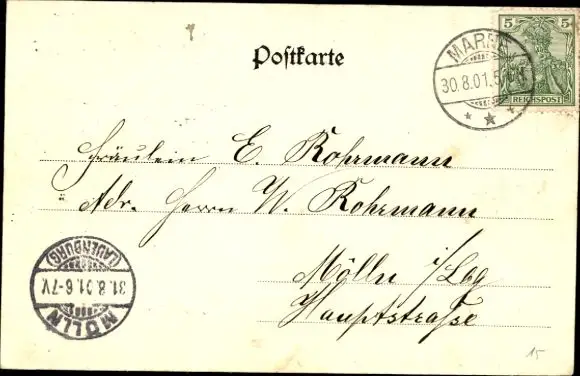 Postkarte
MARNE
30.8.01.5
5 5
REICHSPOST
Fräulein E. Rohrmann
Adr. Herrn W. Rohrmann
Mölln i/Lbg
Hauptstraße
MÖLLN
31.8.01.6-7V
(LAUENBURG)
15